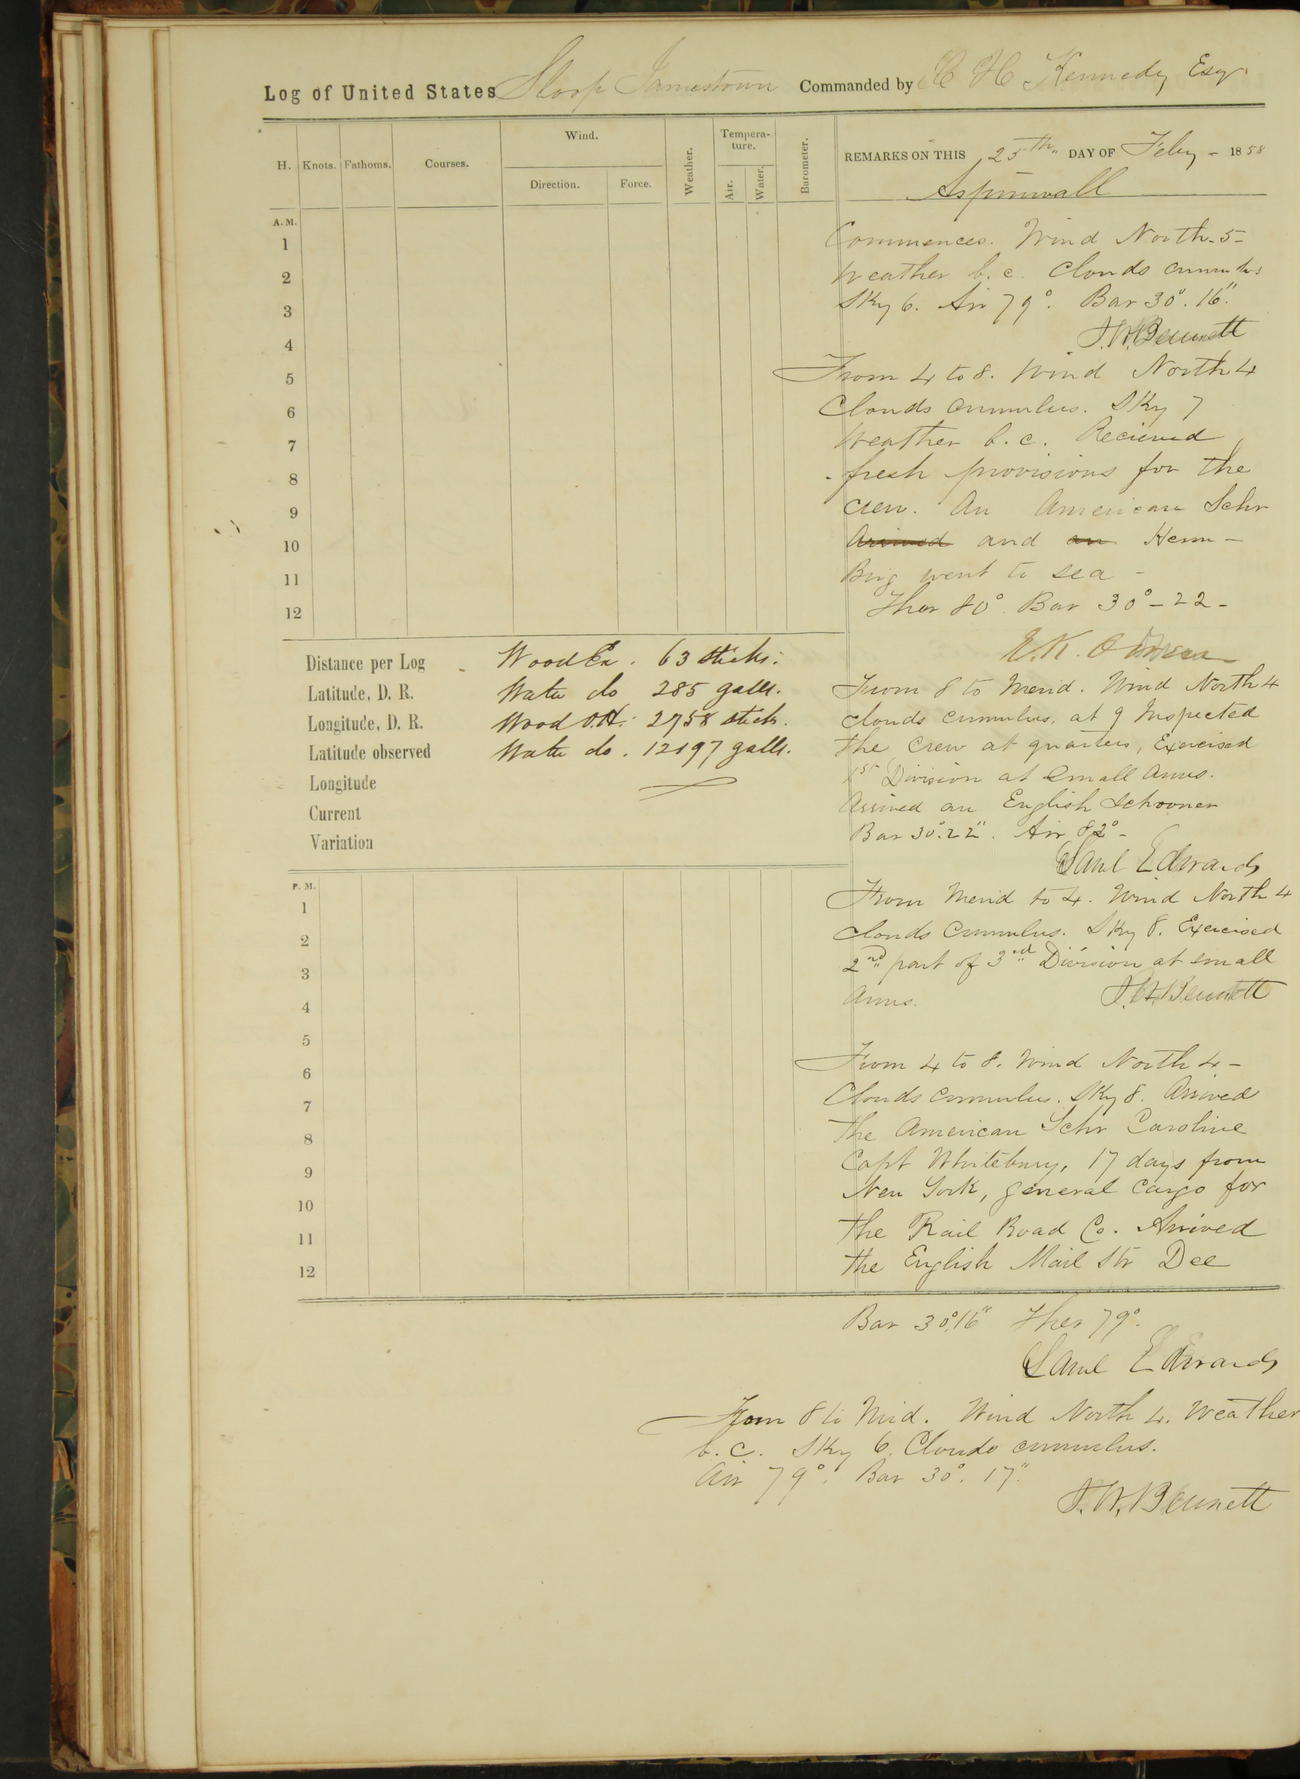 Log of United States Sloop Jamestown Commanded by C H Kennedy Esqr.
H. Knots. Fathoms. Courses. Wind. Direction. Force. Weather. Tempera-ture. Air. Water. Barometer.
REMARKS ON THIS 25th DAY OF Feby - 1858
Aspinwall
A.M.
1
2
3
4
5
6
7
8
9
10
11
12
Commences. Wind North-5-
Weather b.c. Clouds cumulus
Sky 6. Air 79°. Bar 30°.16".
J.W. Bennett
From 4 to 8. Wind North 4
Clouds cumulus. Sky 7
Weather b.c. Recieved
fresh provisions for the
crew. An American Schr
Arrived and an Herm-
Brig went to sea -
Ther 80° Bar 30°-22-
E.K. Owen
Distance per Log
Latitude, D. R.
Longitude, D. R.
Latitude observed
Longitude
Current
Variation
Wood Ex. 63 sticks.
Water do 285 galls.
Wood O.H. 2758 sticks.
Water do. 12197 galls.
From 8 to Merid. Wind North 4
clouds cumulus. at 9 Inspected
the crew at quarters, Exercised
1st Division at small arms.
Arrived an English Schooner
Bar 30°.22". Air 82°-
Saml Edwards
From Merid to 4. Wind North 4
Clouds Cumulus. Sky 8. Exercised
2nd part of 3rd Division at small
arms. J.W. Bennett
P.M.
1
2
3
4
5
6
7
8
9
10
11
12
From 4 to 8. Wind North 4-
Clouds cumulus. Sky 8. Arrived
the American Schr Caroline
Capt Whitebury, 17 days from
New York, general cargo for
the Rail Road Co. Arrived
the English Mail Str Dee
Bar 30°.16" Ther 79°.
Saml Edwards
From 8 to Mid. Wind North 4. Weather
b.c. Sky 6. Clouds cumulus.
Air 79°. Bar 30°.17".
J.W. Bennett